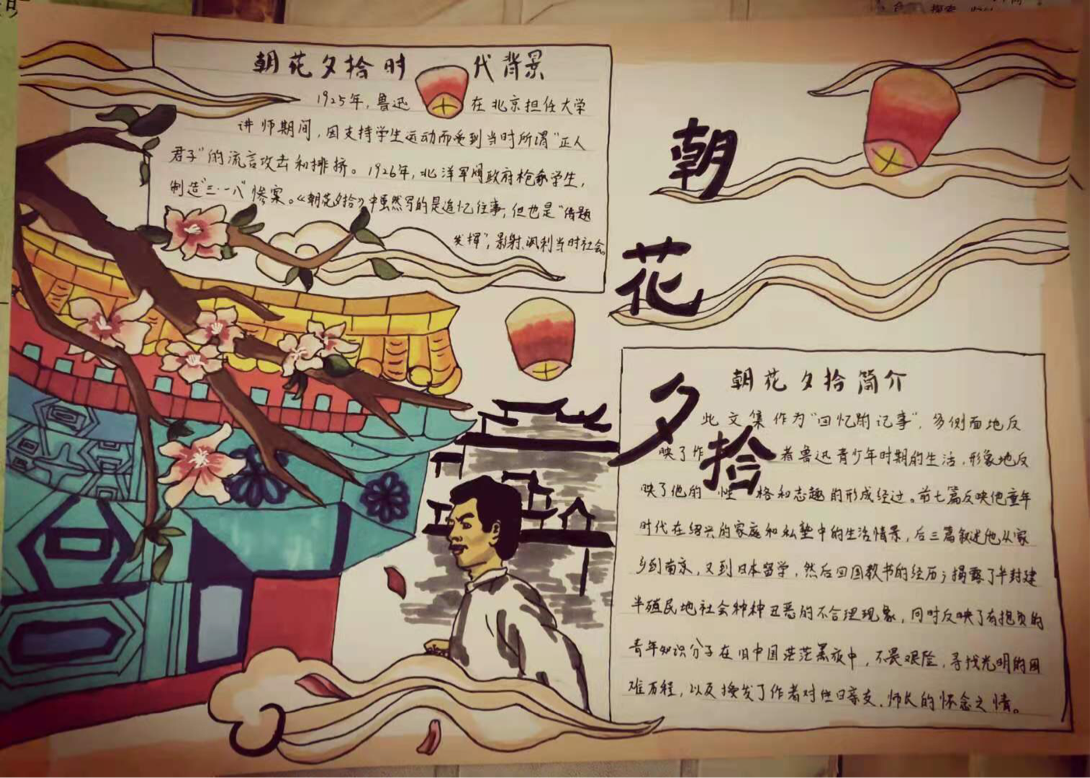 朝花夕拾时代背景
1925年，鲁迅在北京担任大学
讲师期间，因支持学生运动而受到当时所谓“正人
君子”的流言攻击和排挤。1926年，北洋军阀政府枪杀学生，
制造“三·一八”惨案。《朝花夕拾》中虽然写的是追忆往事，但也是“借题
发挥”，影射、讽刺当时社会。
朝
花
夕
拾
朝花夕拾简介
此文集作为“回忆的记事”，多侧面地反
映了作者鲁迅青少年时期的生活，形象地反
映了他的性格和志趣的形成经过。前七篇反映他童年
时代在绍兴的家庭和私塾中的生活情景，后三篇叙述他从家
乡到南京，又到日本留学，然后回国教书的经历；揭露了半封建
半殖民地社会种种丑恶的不合理现象，同时反映了有抱负的
青年知识分子在旧中国茫茫黑夜中，不畏艰险，寻找光明的困
难历程，以及抒发了作者对往日亲友、师长的怀念之情。